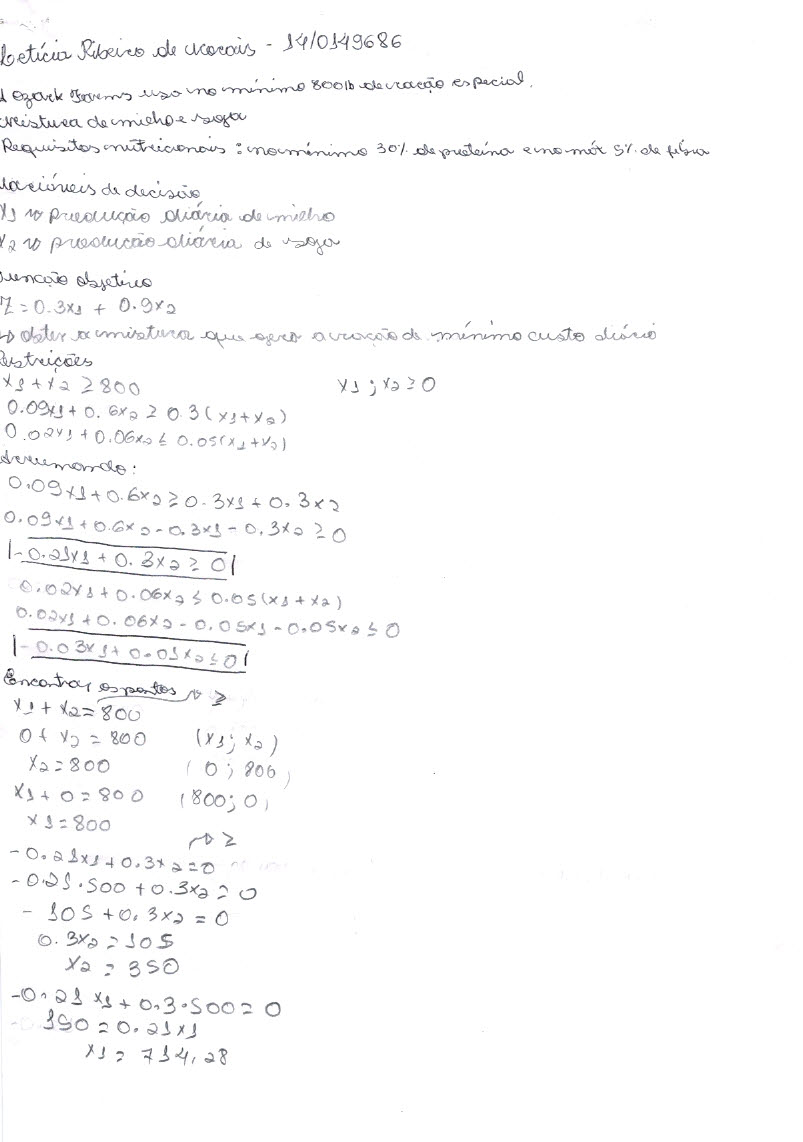 Letícia Ribeiro de Morais - 14/0149686
Ozark Farms usa no mínimo 800lb de ração especial.
Mistura de milho e soja
Requisitos nutricionais: no mínimo 30% de proteína e no máx 5% de fibra
Variáveis de decisão
x1 → produção diária de milho
x2 → produção diária de soja
Função objetivo
Z = 0.3x1 + 0.9x2
→ obter a mistura que gera a ração de mínimo custo diário
Restrições
x1 + x2 ≥ 800 x1 ; x2 ≥ 0
0.09x1 + 0.6x2 ≥ 0.3(x1+x2)
0.02x1 + 0.06x2 ≤ 0.05(x1+x2)
Arrumando:
0.09x1 + 0.6x2 ≥ 0.3x1 + 0.3x2
0.09x1 + 0.6x2 - 0.3x1 - 0.3x2 ≥ 0
|-0.21x1 + 0.3x2 ≥ 0|
0.02x1 + 0.06x2 ≤ 0.05(x1 + x2)
0.02x1 + 0.06x2 - 0.05x1 - 0.05x2 ≤ 0
|-0.03x1 + 0.01x2 ≤ 0|
Encontrar os pontos → ≥
x1 + x2 = 800
0 + x2 = 800 (x1 ; x2)
x2 = 800 (0 ; 800)
x1 + 0 = 800 (800 ; 0)
x1 = 800
→ ≥
-0.21x1 + 0.3x2 = 0
-0.21.500 + 0.3x2 = 0
-105 + 0.3x2 = 0
0.3x2 = 105
x2 = 350
-0.21x1 + 0.3.500 = 0
150 = 0.21x1
x1 = 714,28